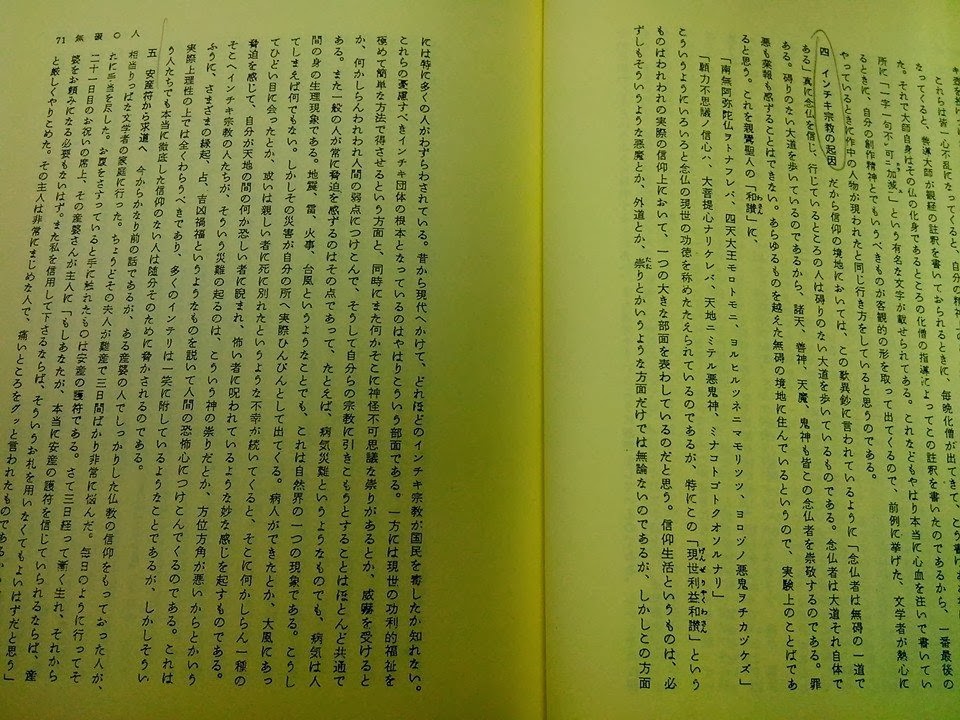 これらは皆一心不乱になって、自分の精神
なってくると、善導大師が観経の註釈を書いておられるときに、毎晩化僧が出てきて、
た。それで大師自身はその仏の化身であるところの化僧の指導によってこの註釈を書いたのであるから、一番最後の
所に「一字一句不可加減」という有名な文字が載せられてある。これなどもやはり本当に心血を注いで書いてい
るときに、自分の創作精神とでもいうべきものが客観的の形を取って出てくるので、前例に挙げた、文学者が熱心に
やっているときに作中の人物が現われたと同じ行き方をしていると思うのである。
四 インチキ宗教の起因 だから信仰の境地においては、この歎異鈔に言われているように「念仏者は無碍の一道で
ある」真に念仏を信じ、行じているところの人は碍りのない大道を歩いているものである。念仏者は大道それ自体で
ある。碍りのない大道を歩いているのであるから、諸天、善神、天魔、鬼神も皆この念仏者を崇敬するのである。罪
悪も業報も感ずることはできない。あらゆるものを越えた無碍の境地に住んでいるというので、実験上のことばであ
ると思う。これを親鸞聖人の「和讃」に、
「南無阿弥陀仏ヲトナフレバ、四天大王モロトモニ、ヨルヒルツネニマモリツツ、ヨロヅノ悪鬼ヲチカヅケズ」
「願力不思議ノ信心ハ、大菩提心ナリケレバ、天地ニミテル悪鬼神、ミナコトゴトクオソルナリ」
こういうようにいろいろと念仏の現世の功徳を称めたたえられているのであるが、特にこの「現世利益和讃」という
ものはわれわれの実際の信仰上において、一つの大きな部面を表わしているのだと思う。信仰生活というものは、必
ずしもそういうような悪魔とか、外道とか、祟りとかいうような方面だけでは無論ないのであるが、しかしこの方面
71 無碍の人
には特に多くの人がわずらわされている。昔から現代へかけて、どれほどのインチキ宗教が国民を毒したか知れない。
これらの憂慮すべきインチキ団体の根本となっているのはやはりこういう部面である。一方には現世の功利的福祉を
極めて簡単な方法で得させるという方面と、同時にまた何かそこに神怪不可思議な祟りがあるとか、威嚇を受けると
か、何かしらんわれわれ人間の弱点につけこんで、そうして自分らの宗教に引きこもうとすることはほとんど共通で
ある。また一般の人が常に脅迫を感ずるのはその点であって、たとえば、病気災難というようなものでも、病気は人
間の身の生理現象である。地震、雷、火事、台風というようなことでも、これは自然界の一つの現象である。こうし
てしまえば何でもない。しかしその災害が自分の所へ実際ひんぴんとして出てくる。病人ができたとか、大風にあっ
てひどい目に会ったとか、或いは親しい者に死に別れたというような不幸が続いてくると、そこに何かしらん一種の
脅迫を感じて、自分が天地の間の何か恐しい者に睨まれ、怖い者に呪われているような妙な感じを起すものである。
そこへインチキ宗教の人たちが、そういう災難の起るのは、こういう神の祟りだとか、方位方角が悪いからとかいい
ふうに、さまざまの縁起、占、吉凶禍福というようなものを説いて人間の恐怖心につけこんでくるのである。これは
実際上理性の上では全くわらうべきであり、多くのインテリは一笑に附しているようなことであるが、しかしそうい
う人たちでも本当に徹底した信仰のない人は随分そのために脅かされるのである。
五 安産符から求道へ 今からかなり前の話であるが、ある産婆の人でしっかりした仏教の信仰をもっておった人が、
相当りっぱな文学者の家庭に行った。ちょうどその夫人が難産で三日間ばかり非常に悩んだ。毎日のように行ってそ
れに手当を尽した。お腹をさすっていると手に触れたものは安産の護符である。さて三日経って漸く生れ、それから
二十一日目のお祝いの席上、その産婆さんが主人に「もしあなたが、本当に安産の護符を信じていられるならば、産
婆をお頼みになる必要もないはず。また私を信用して下さるならば、そういうお札を用いなくてもよいはずだと思う」
と厳しくやりこめた。その主人は非常にまじめな人で、痛いところをグッと言われたもので